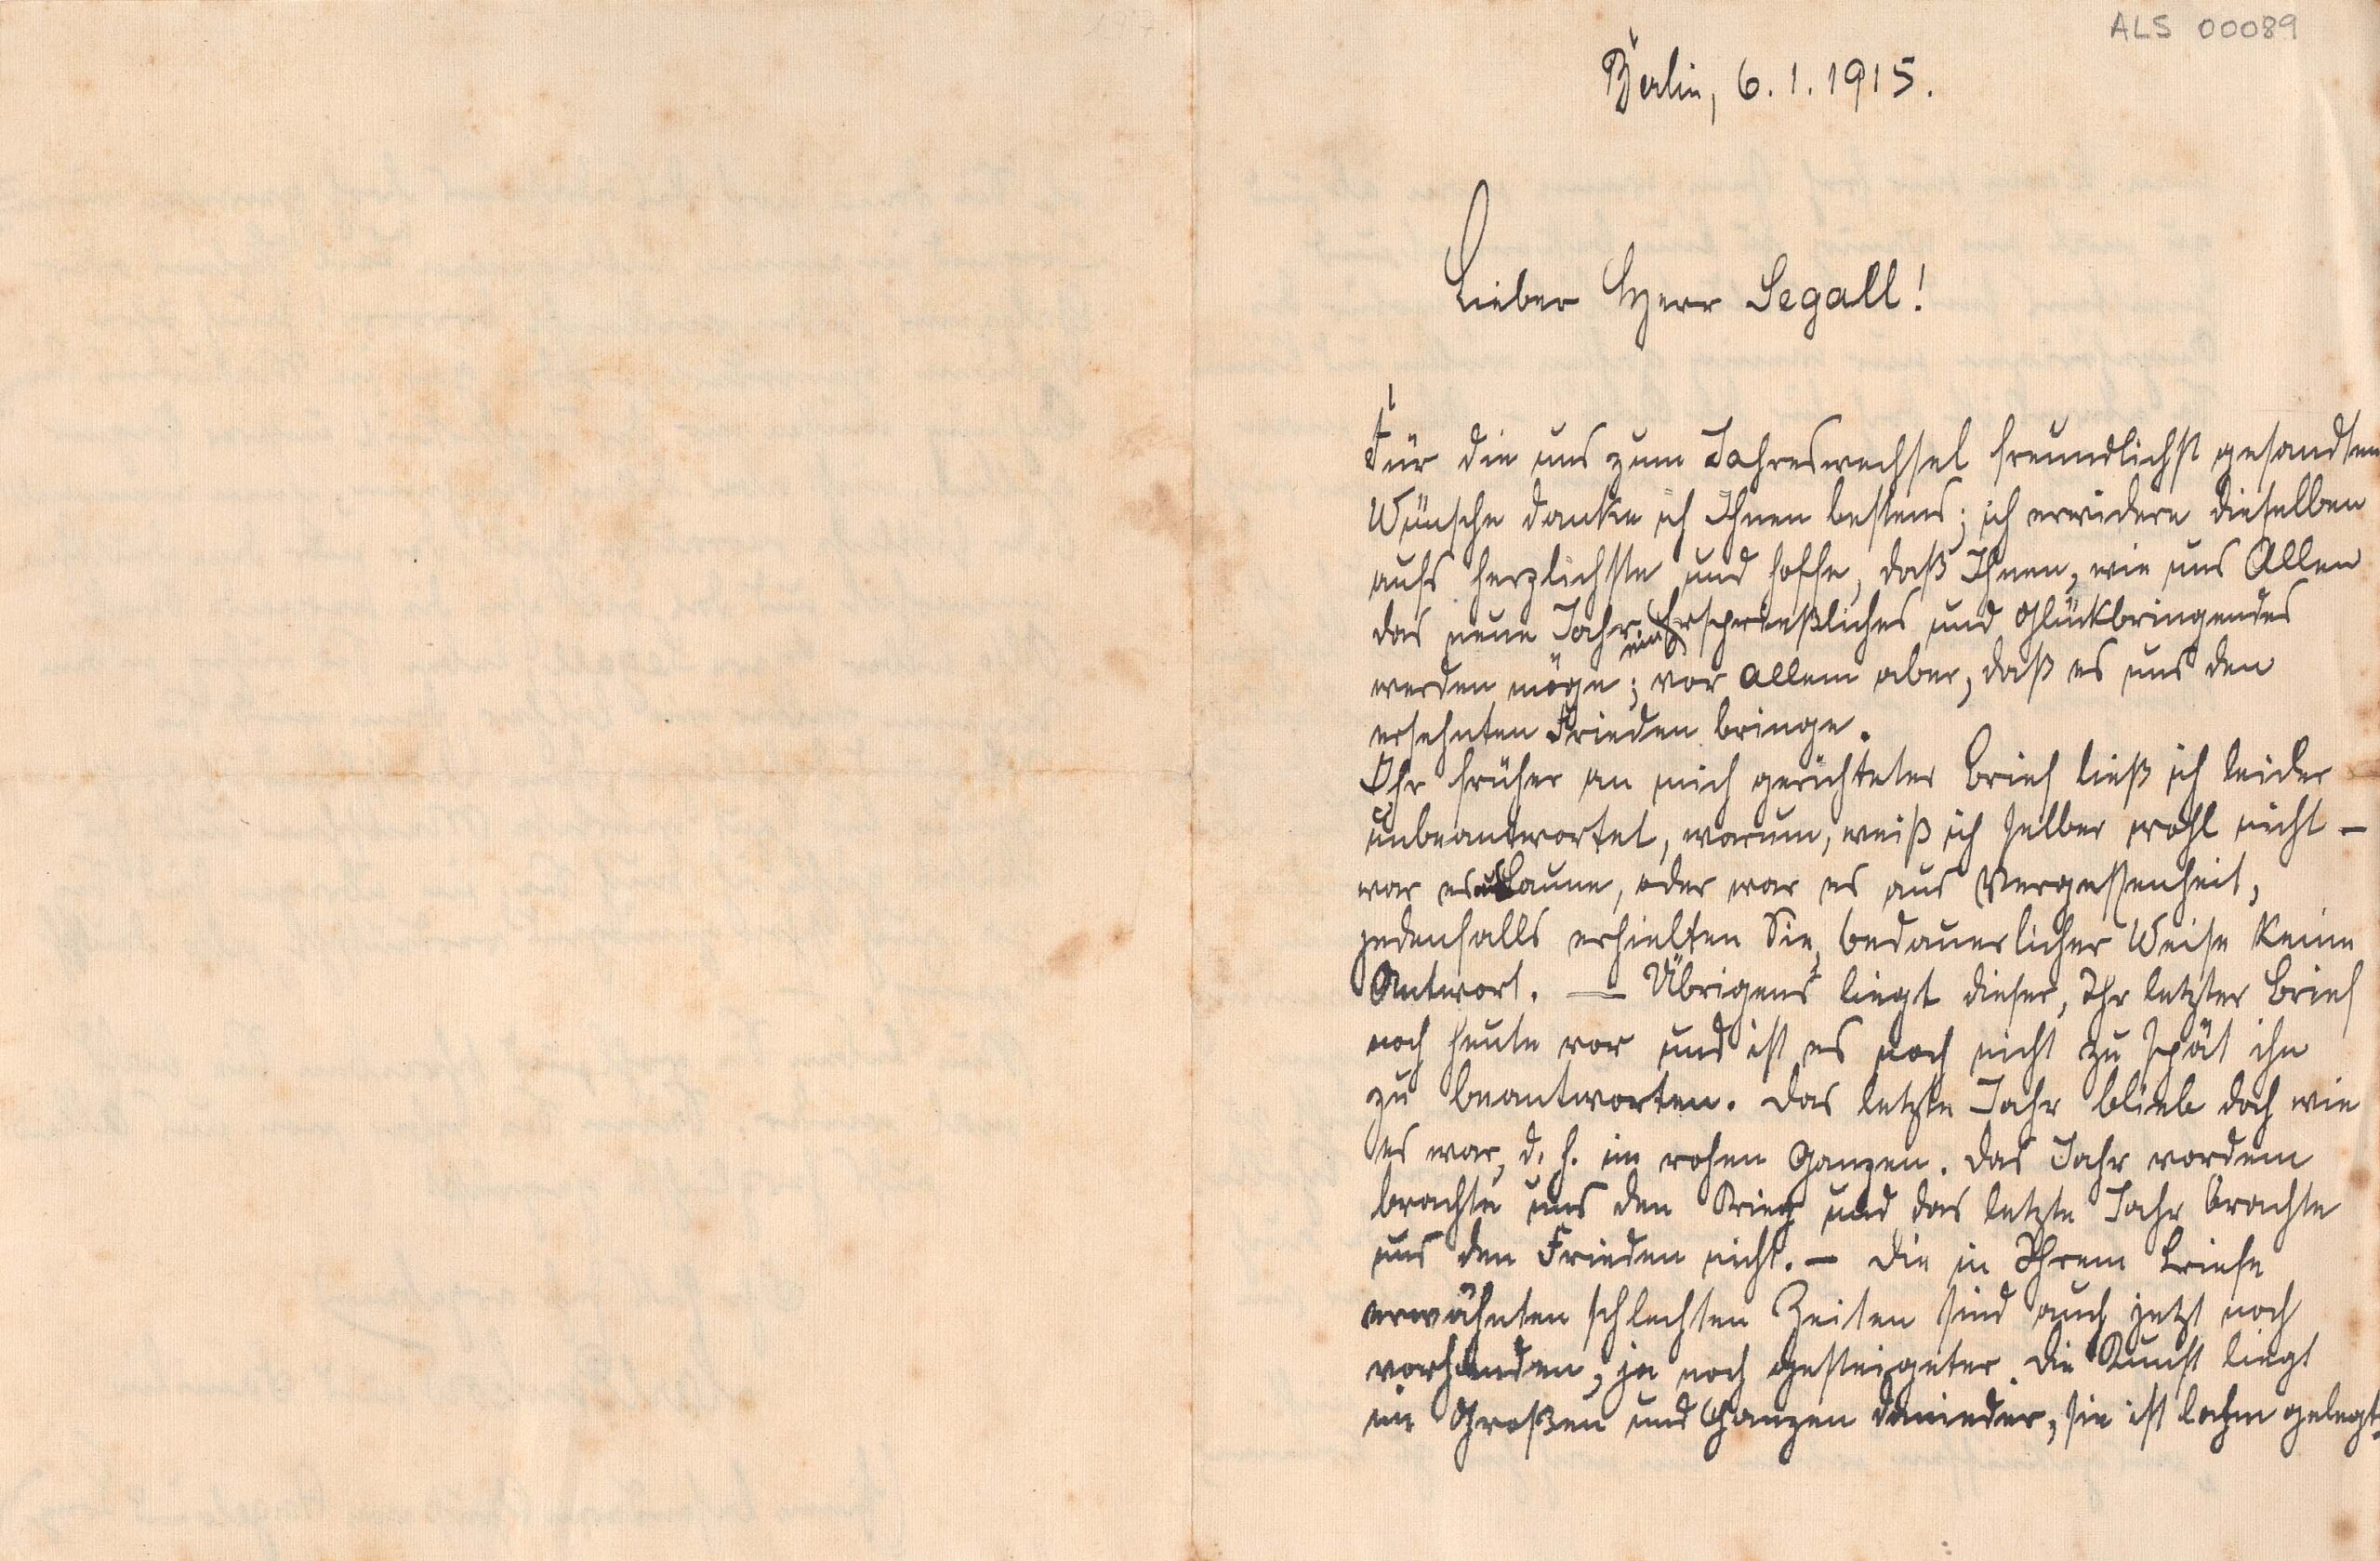 ALS 00089
Berlin, 6.1.1915.
Lieber Herr Segall!
Für die uns zum Jahreswechsel freundlichst gesandten
Wünsche danke ich Ihnen bestens; ich erwidere dieselben
aufs herzlichste und hoffe, daß Ihnen, wie uns Allen
das neue Jahr ein Ersprießliches und Glückbringendes
werden möge; vor allem aber, daß es uns den
ersehnten Frieden bringe.
Ihr früher an mich gerichteter Brief ließ ich leider
unbeantwortet, warum, weiß ich selber wohl nicht –
war es aus Laune, oder war es aus Vergessenheit,
jedenfalls erhielten Sie, bedauerlicher Weise keine
Antwort. — Übrigens liegt dieser, Ihr letzter Brief
noch heute vor und ist es noch nicht zu spät ihn
zu beantworten. Das letzte Jahr blieb doch wie
es war, d. h. im rohen Ganzen. Das Jahr vordem
brachte uns den Krieg und das letzte Jahr brachte
uns den Frieden nicht. – Die in Ihrem Briefe
erwähnten schlechten Zeiten sind auch jetzt noch
vorhanden, ja noch gesteigerter. Die Kunst liegt
im Großen und Ganzen danieder, sie ist lahm gelegt.